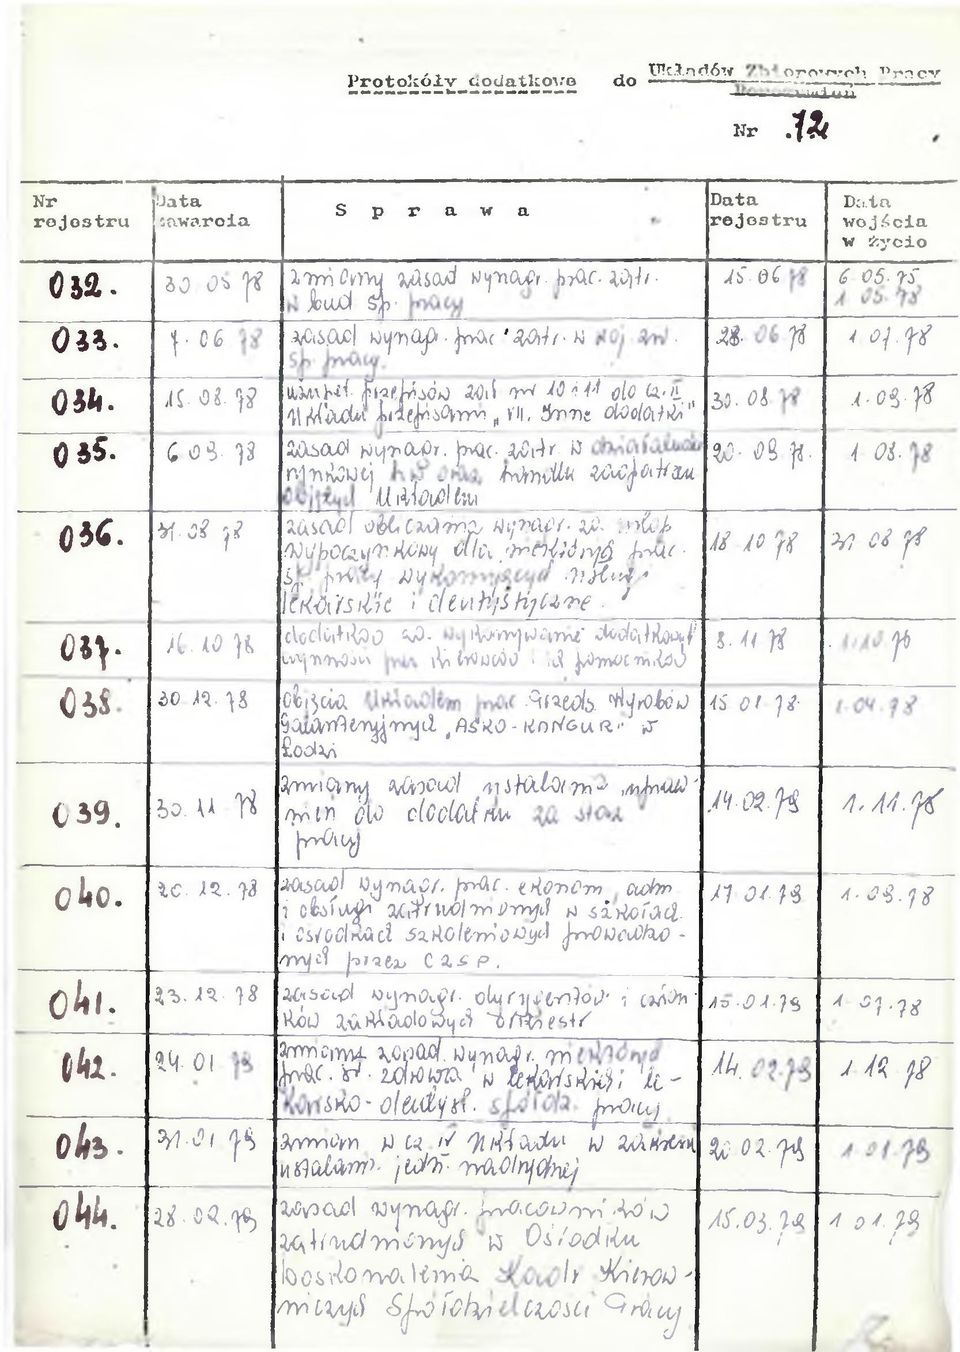 Protokóły dodatkowe do Układów Zbiorowych Pracy
Porozumień
Nr 72
Nr rejestru Data zawarcia S p r a w a Data rejestru Data wejścia w życie
032. 30.05 78 zmiany zasad wynagr. prac. zatr. 15.06 78 6.05.75,
w bud sp. pracy 1.05.78
033. 7.06 78 zasad wynagr. prac. zatr. w 28.06.78 1.07.78
sp. pracy.
034. 15.08.78 uzupeł. przepisów zał nr 10 i 11 do cz. II 30.08.78 1.09.78
Układu przepisami „VII. Inne dodatki"
035. 6.09.78 zasad wynagr. prac. zatr. w 20.09.78. 1.08.78
rynkowej oraz handlu zaopatrzen
objętych Układem
036. 31.08 78 zasad obliczania wynagr. za urlop 18.10 78 31 08 78
wypoczynkowy dla niektórych prac.
sp. pracy wykonujących usługi
lekarskie i dentystyczne.
037. 16.10 78 dodatków za wykonywanie dodatkowych 8.11 78 1.10.78
czynności przez kierowców i ich pomocników
038. 30.12.78 objęcia Układem prac. Przeds. Wyrobów 15 01 78. 1.04.78
Galanteryjnych „ASKO-KANGUR" w
Łodzi
039. 30.11 78 zmiany zasad ustalania upraw- 14.02.79 1.11.78
nień do dodatku za staż
pracy
040. 20.12.78 zasad wynagr. prac. ekonom, adm 17 01.79 1.09.78
i obsługi zatrudnionych w szkołach
i ośrodkach szkoleniowych prowadzo-
nych przez CZSP.
041. 23.12.78 zasad wynagr. dyrygentów i człon- 15.01.79 1.07.78
ków zakładowych orkiestr
042. 24.01 79 zmiany zasad wynagr. niektórych 14.02.79 1.12.78
prac. sł. zdrowia w lekarskich i le-
karsko-dentyst. spółdz. pracy
043. 31.01.79 zmian w cz. IV Układu w zakresie 20.02.79 1 01.79
ustalania jedn. nadrzędnej
044. 28.02.79 zasad wynagr. pracowników 15.03.79 1 01.79
zatrudnionych w Ośrodku
Doskonalenia Kadr Kierow-
niczych Spółdzielczości Pracy